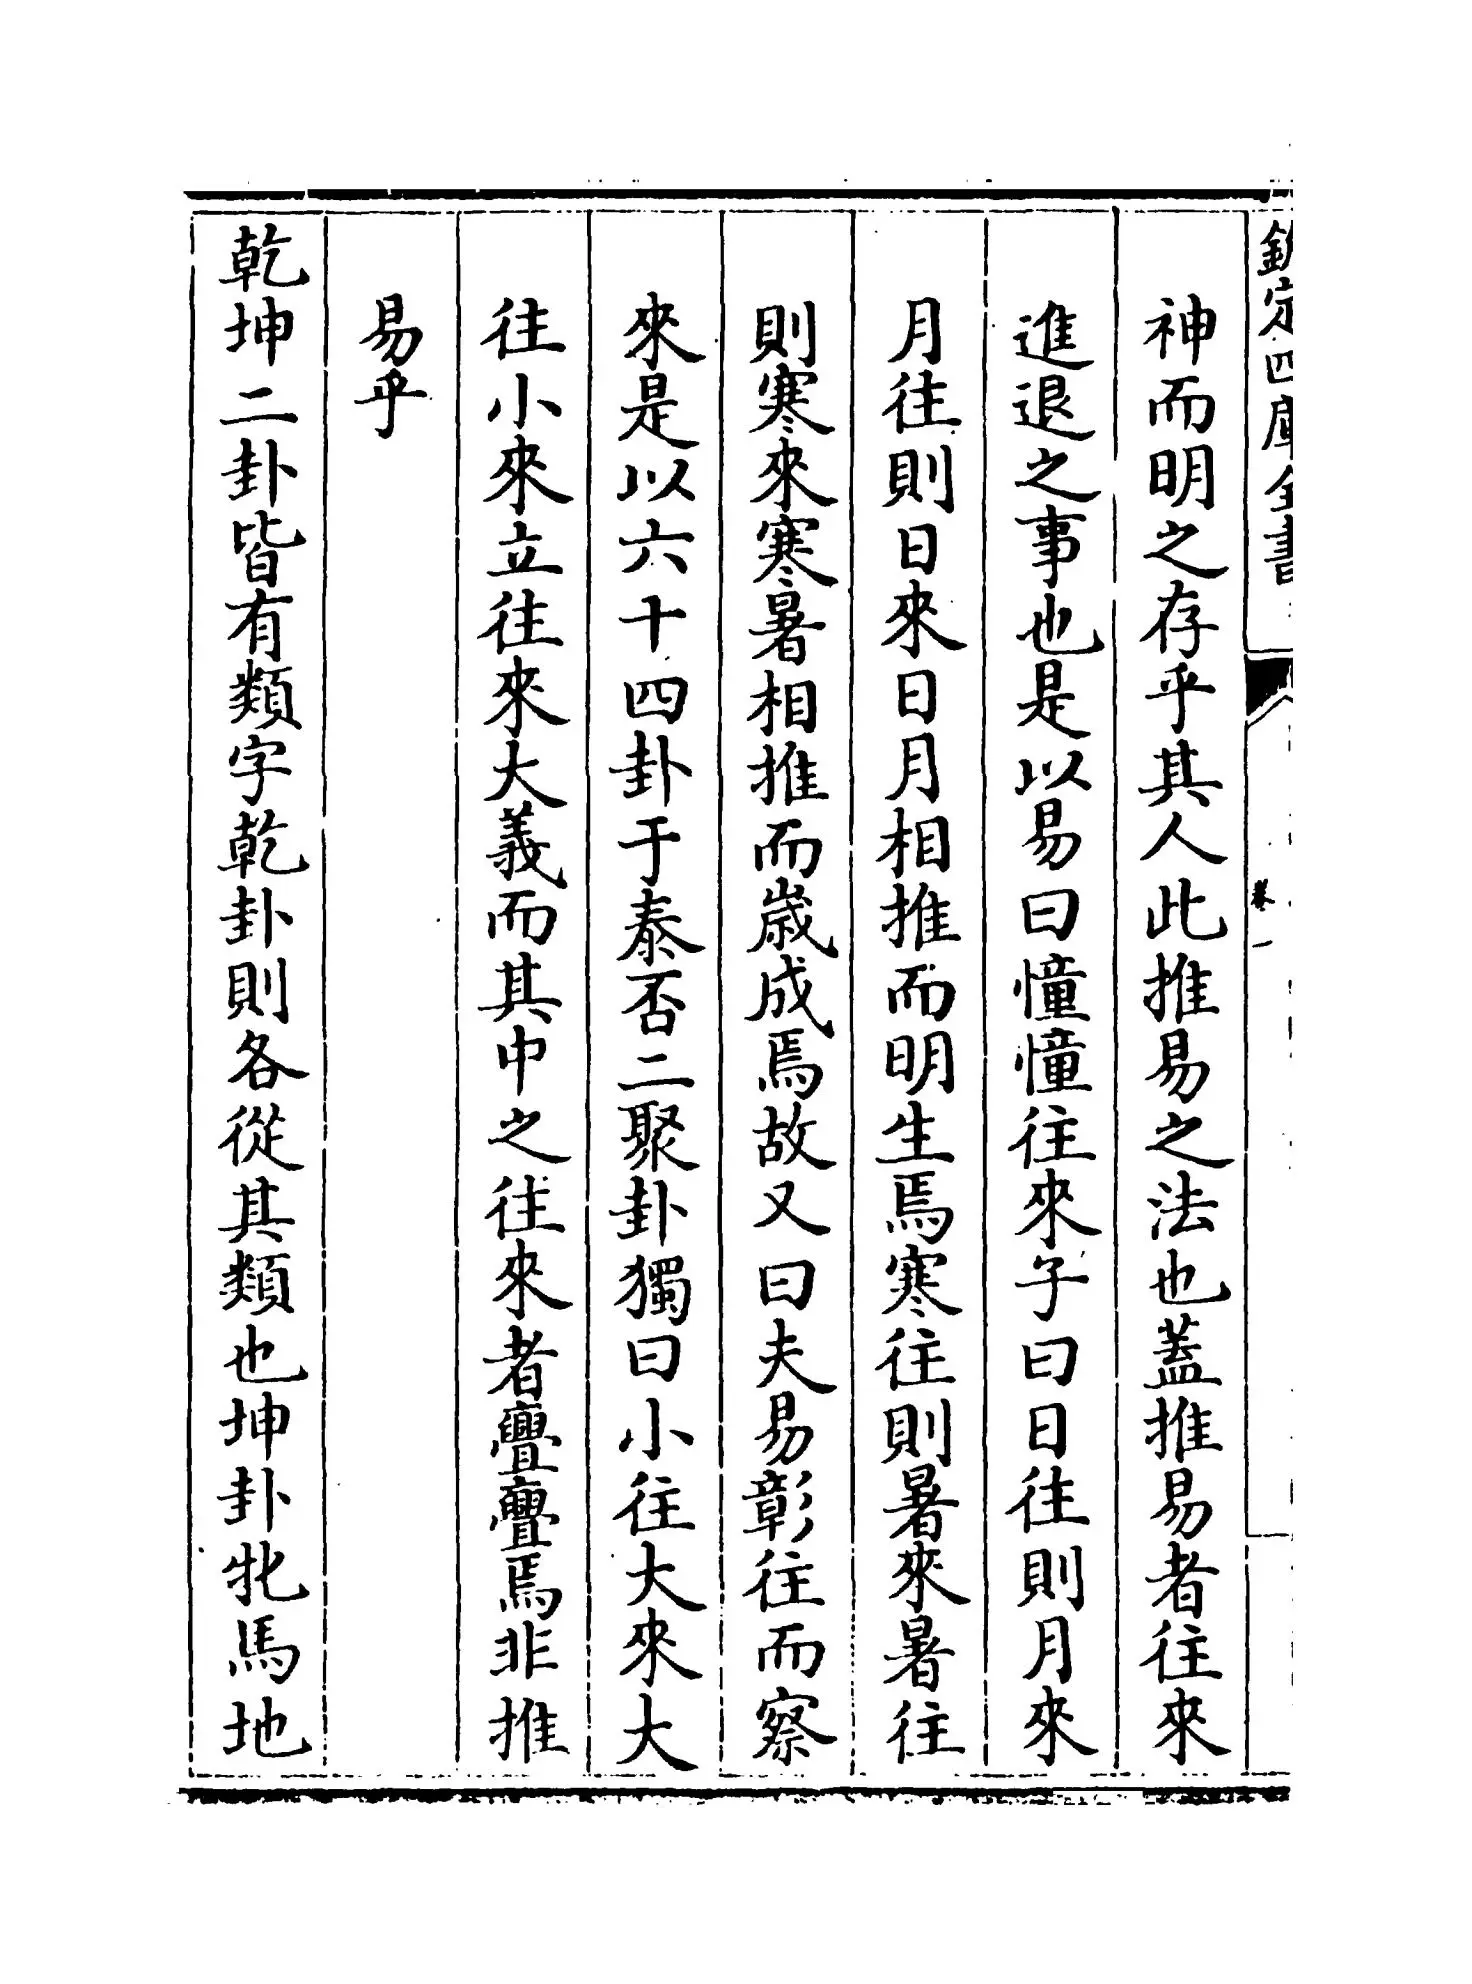 欽定四庫全書
卷一
神而明之存乎其人此推易之法也蓋推易者往來
進退之事也是以易曰憧憧往來子曰日往則月來
月往則日來日月相推而明生焉寒往則暑來暑往
則寒來寒暑相推而歲成焉故又曰夫易彰往而察
來是以六十四卦于泰否二聚卦獨曰小往大來大
往小來立往來大義而其中之往來者亹亹焉非推
易乎
乾坤二卦皆有類字乾卦則各從其類也坤卦牝馬地